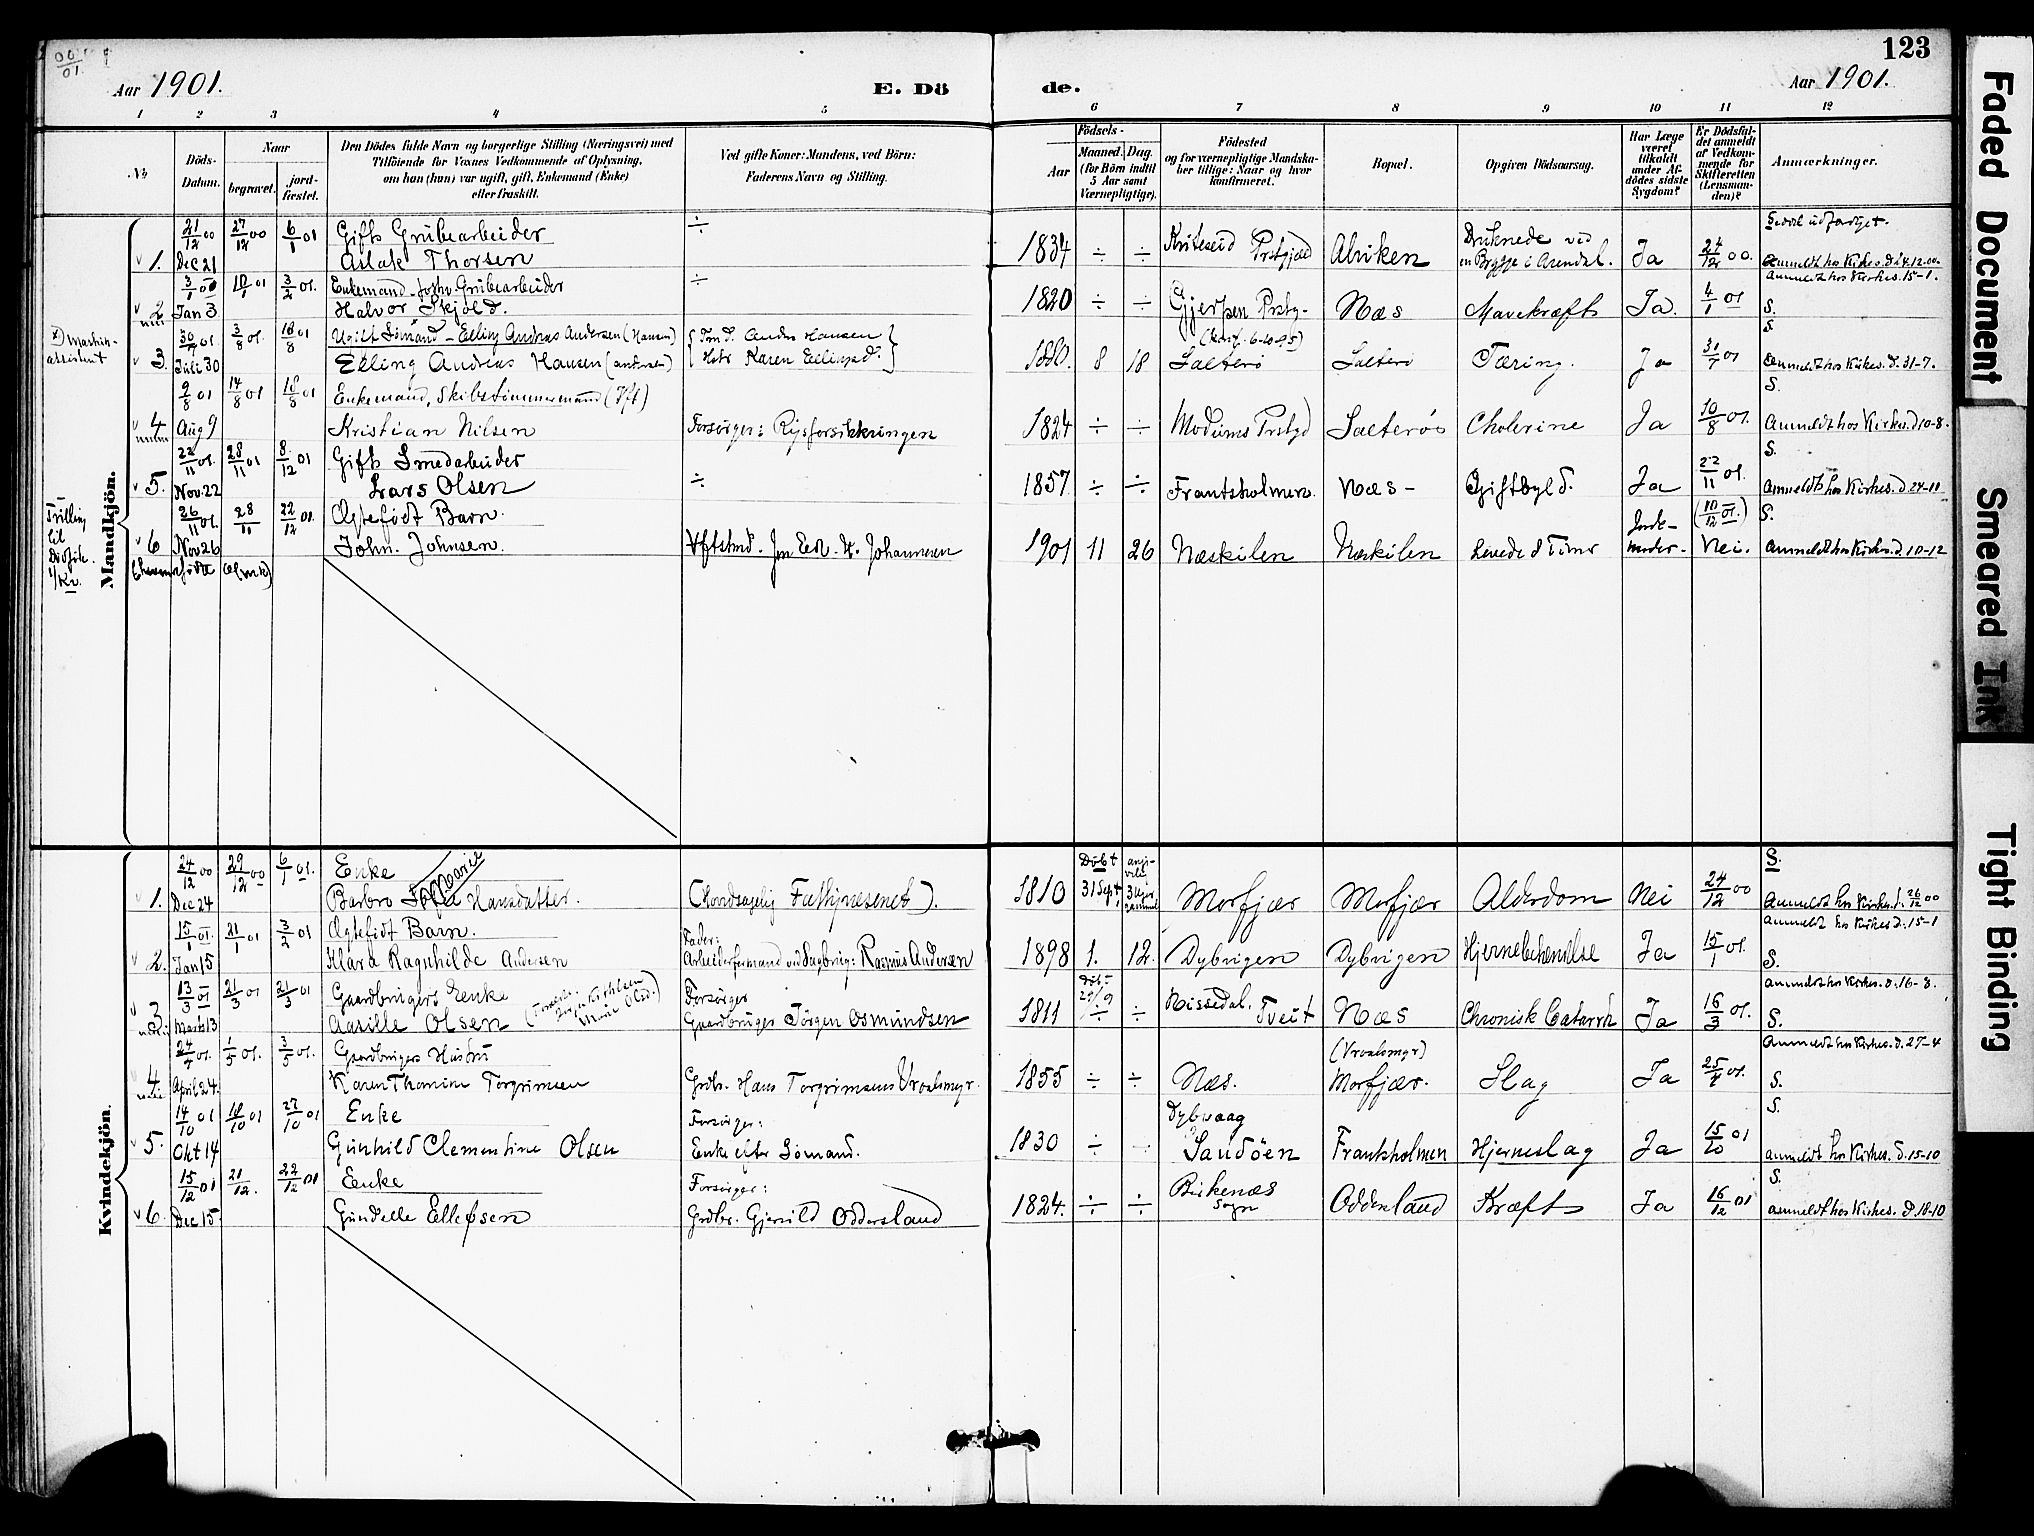 123
Aar 1901.
E. Dö
de.
Aar 1901.
1 2 3 4 5 6 7 8 9 10 11 12
No
Döds-Datum.
Naar
begravet.
jord-fæstet.
Den Dödes fulde Navn og borgerlige Stilling (Næringsvei) med
Tilföiende for Voxnes Vedkommende af Oplysning,
om han (hun) var ugift, gift, Enkemand (Enke)
eller fraskilt.
Ved gifte Koner: Mandens, ved Börn:
Faderens Navn og Stilling.
Födsels-
Aar
Maaned. Dag.
(for Börn indtil
5 Aar samt
Værnepligtige).
Födested
og for værnepligtige Mandska-
ber tillige: Naar og hvor
konfirmeret.
Bopæl.
Opgiven Dödsaarsag.
Har Læge
været
tilkaldt
under Af-
dödes sidste
Sygdom?
Er Dödsfal-
det anmeldt
af Vedkom-
mende for
Skifteretten
(Lensman-
den)?
Anmærkninger.
Mandkjön.
21/12 00 27/12 00 6/1 01 Gift Grubearbeider ÷
1. Dec 21 Aslak Thorsen 1834 ÷ ÷ Kviteseid Prstgjæld Alviken Druknede ved en Brygge i Arendal. Ja 24/12 00. Anmeldt hos Kirkes. d. 24.12.00
3/1 01 10/1 01 3/2 01. Enkemand. forhv. Grubearbeider ÷ Anmeldt hos Kirkes. 15-1.
2. Jan 3 Halvor Skjold. 1820 ÷ ÷ Gjerpen Prstg- Næs Mavekræft Ja. 4/1 01 S.
x) Maskin-assistent
30/7 01 3/8 01. 18/8 01 Ugift Sömand - Elling Andreas Andersen (Hansen) Anders Hansen (Konf. 6-10-95) S.
3. Juli 30 Elling Andreas Hansen Karen Ellingsd. 1880. 8 18 Salterö Salterö Tæring. Ja 31/7 01 Anmeldt hos Kirkes. d. 31-7.
9/8 01 14/8 01 18/8 01 Enkemand, Skibstömmermand S.
4 Aug 9 Kristian Nilsen Forsörger: 1824 ÷ ÷ Modums Prstgd Salteröe Cholerine Ja 10/8 01. Anmeldt hos Kirkes. d 10-8.
22/11 01. 28/11 01 8/12 01 Gift Smedarbeider S.
5. Nov. 22 Lars Olsen ÷ 1857. ÷ ÷ Frantsholmen. Næs - Giftbyld. Ja 22/11 01. Anmeldt hos Kirkes. d 24-11
26/11 01. 28/11 22/12 01. Ægtefödt Barn. (10/12 01.) S.
6 Nov 26 John. Johnsen. 1901 11 26 Næskilen Næskilen Levede 8 Timer Jorde-moder- Nei. Anmeldt hos Kirkes. d. 10-12
Trilling
til
Kvindekjön.
24/12 00 29/12 00 6/1 01. Enke Döbt S.
1. Dec 24 Barbro Marie Hansdatter. 1810 31 Sept Morfjær Morfjær Alderdom Nei 24/12 00 Anmeldt hos Kirkes. d. 26/12 00
15/1 01. 21/1 01 3/2 01 Ægtefödt Barn. Fader: Anmeldt hos Kirkes d. 15-1
2. Jan 15 Klara Ragnhilde Andersen Arbeiderformand ved Sagbrug: Rasmus Andersen 1898 1. 12. Dybvigen Dybvigen Hjernebetændelse Ja 15/1 01. S.
13/3 01 21/3 01 21/3 01 Gaardbrugers Enke Forsörger Anmeldt hos Kirkes. d. 16-3.
3 Marts 13 Aasille Olsen Gaardbruger Jörgen Osmundsen 1811 ÷ ÷ Nissedal. Tveit Næs Chronisk Catarrh Ja 16/3 01. S.
24/4 01. 1/5 01. 3/5 01. Gaardbrugers Hustru (Vraalsmyr) Anmeldt hos Kirkes. d. 27-4
4. April 24. Karen Thomine Torgrimsen Grdbr. Hans Torgrimsens Vraalsmyr. 1855 ÷ ÷ Næs. Morfjær. Slag Ja 25/4 01. S.
14/10 01 18/10 01 27/10 01 Enke Forsörger: Dybvaag S.
5. Okt 14 Gunhild Clementine Olsen Enke efter Sömand. 1830 ÷ Sandöen Frantsholmen Hjerneslag Ja 15/10 01 Anmeldt hos Kirkes. d. 15-10
15/12 01 21/12. 22/12 01 Enke Forsörger: Birkenæs S.
6. Dec 15. Gundelle Ellefsen 1824. ÷ ÷ Sogn Oddersland Kræft Ja 16/12 01 Anmeldt hos Kirkes. d. 18-10
Faded Document
Smeared Ink
Tight Binding